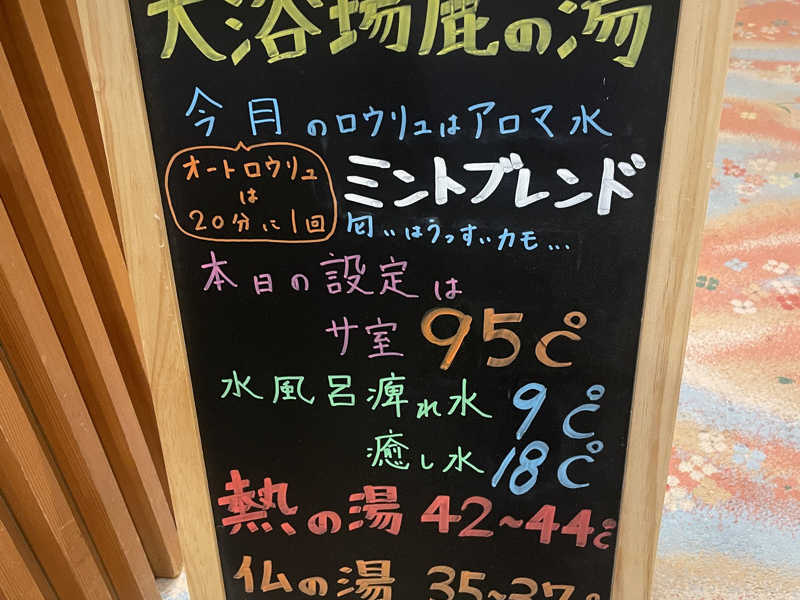 大浴場鹿の湯
今月のロウリュはアロマ水
オートロウリュ
は
20分に1回
ミントブレンド
匂いはうっすぃカモ...
本日の設定は
サ室 95℃
水風呂 痺れ水 9℃
癒し水 18℃
熱の湯 42~44℃
仏の湯 35~37℃